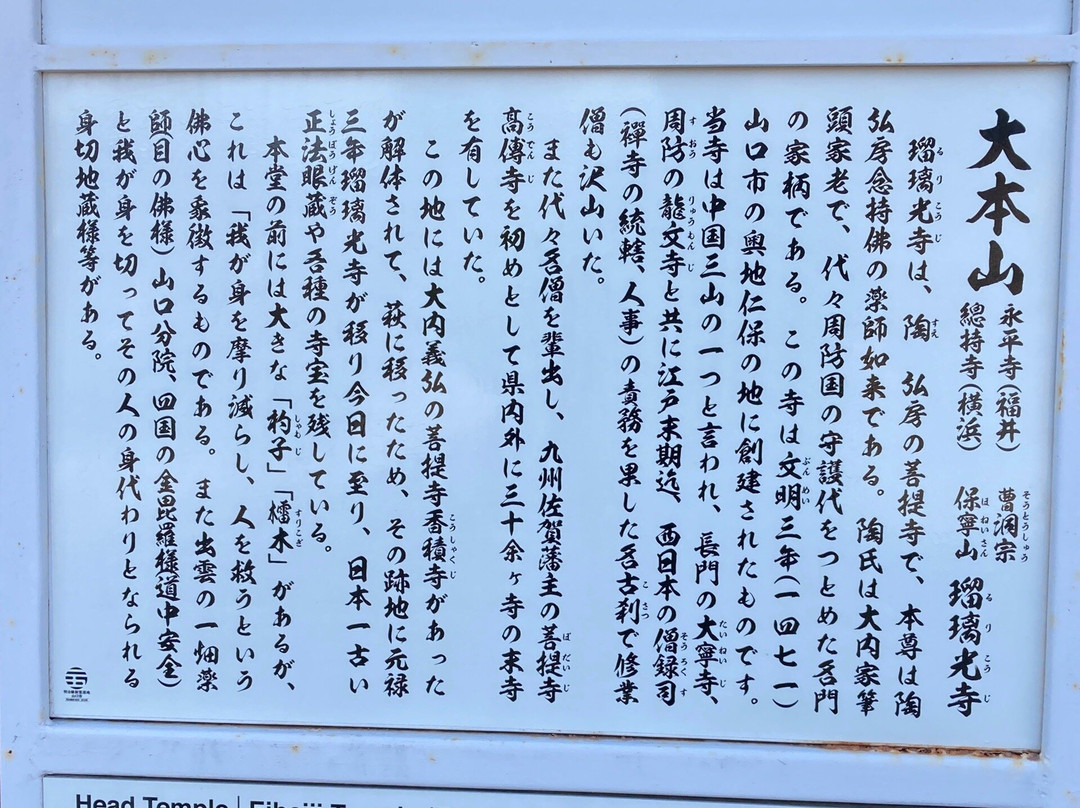 大本山
永平寺(福井)
總持寺(横浜)
曹洞宗
保寧山
瑠璃光寺
瑠璃光寺は、陶 弘房の菩提寺で、本尊は陶
弘房念持佛の薬師如来である。陶氏は大内家筆
頭家老で、代々周防国の守護代をつとめた名門
の家柄である。この寺は文明三年(一四七一)
山口市の奥地仁保の地に創建されたものです。
当寺は中国三山の一つと言われ、長門の大寧寺、
周防の龍文寺と共に江戸末期迄、西日本の僧録司
(禅寺の統轄、人事)の責務を果した名古刹で修業
僧も沢山いた。
また代々名僧を輩出し、九州佐賀藩主の菩提寺
高傳寺を初めとして県内外に三十余ヶ寺の末寺
を有していた。
この地には大内義弘の菩提寺香積寺があった
が解体されて、萩に移ったため、その跡地に元禄
三年瑠璃光寺が移り今日に至り、日本一古い
正法眼蔵や各種の寺宝を残している。
本堂の前には大きな「杓子」「櫺木」があるが、
これは「我が身を摩り減らし、人を救うという
佛心を象徴するものである。また出雲の一畑薬
師(目の佛様)山口分院、四国の金毘羅様道中安全)
と我が身を切ってその人の身代わりとなられる
身切地蔵様等がある。
Head Temple